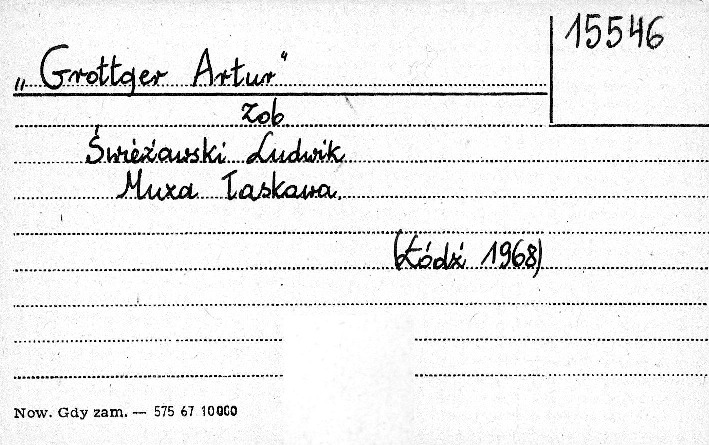 15546
„Grottger Artur"
zob
Świeżawski Ludwik
Muza Łaskawa.
(Łódź 1968)
Now. Gdy zam. — 575 67 10000